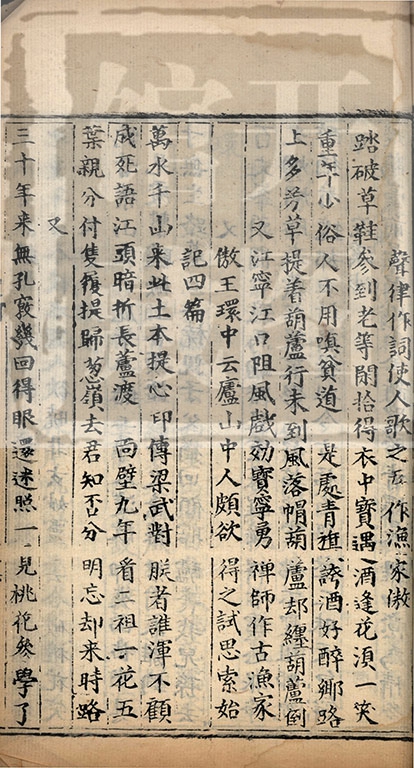 聲律作詞使人歌之作漁家傲
踏破草鞋參到老等閒拾得衣中寶遇酒逢花須一笑
重年少俗人不用嗔貧道是處青旗誇酒好醉鄉路
上多芳草提着葫蘆行未到風落帽葫蘆却纏葫蘆倒
又江寧江口阻風戲効寶寧勇禪師作古漁家
傲王環中云廬山中人頗欲得之試思索始
記四篇
萬水千山來此土本提心印傳梁武對朕者誰渾不顧
成死語江頭暗折長蘆渡面壁九年看二祖一花五
葉親分付隻履提歸葱嶺去君知否分明忘却来時路
又
三十年来無孔竅幾回得眼還迷照一見桃花叅學了